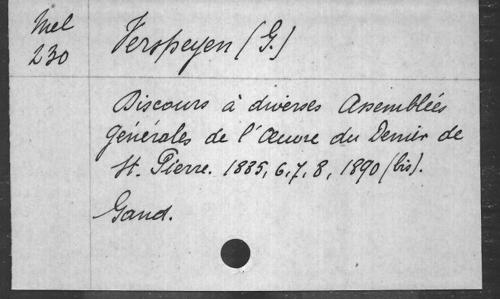 Mel
230
Verspeyen (G.)
Discours à diverses Assemblées
Générales de l'Œuvre du Denier de
St. Pierre. 1885, 6, 7, 8, 1890 (bis).
Gand.